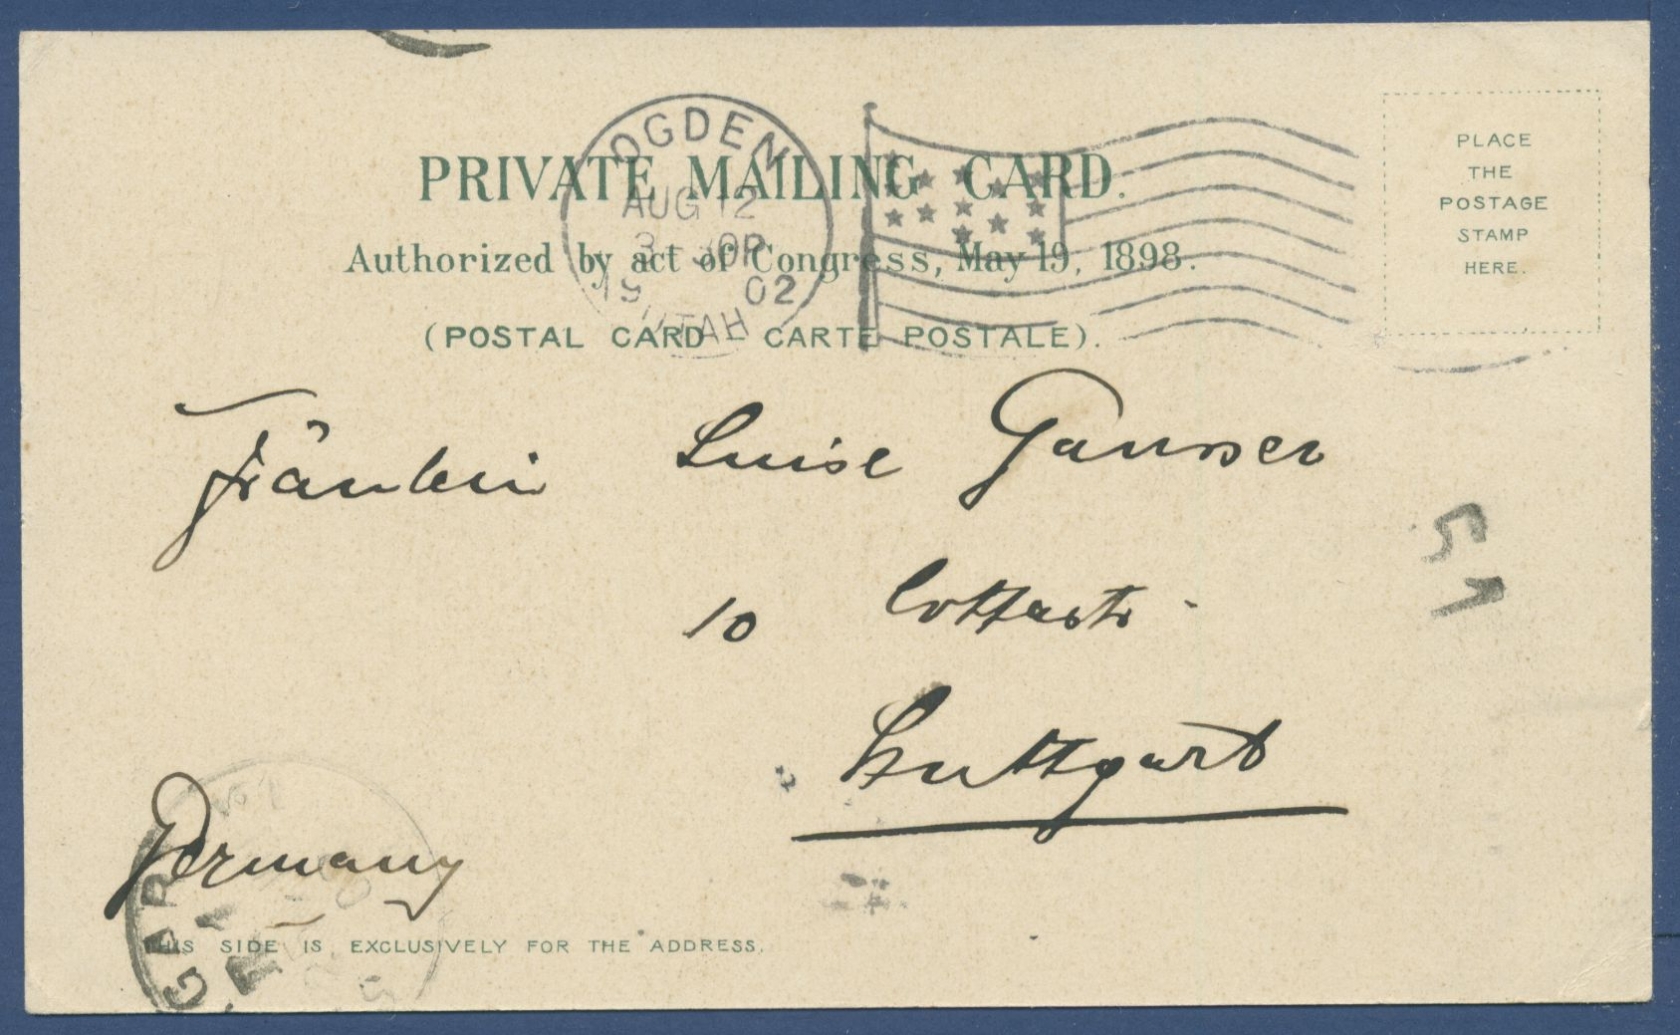 OGDEN
AUG 12
3 30P
19 02
UTAH
PRIVATE MAILING CARD.
Authorized by act of Congress, May 19, 1898.
(POSTAL CARD — CARTE POSTALE).
PLACE
THE
POSTAGE
STAMP
HERE.
Fräulein Luise Gausser
10 Cottastr.
Stuttgart
Germany
THIS SIDE IS EXCLUSIVELY FOR THE ADDRESS.